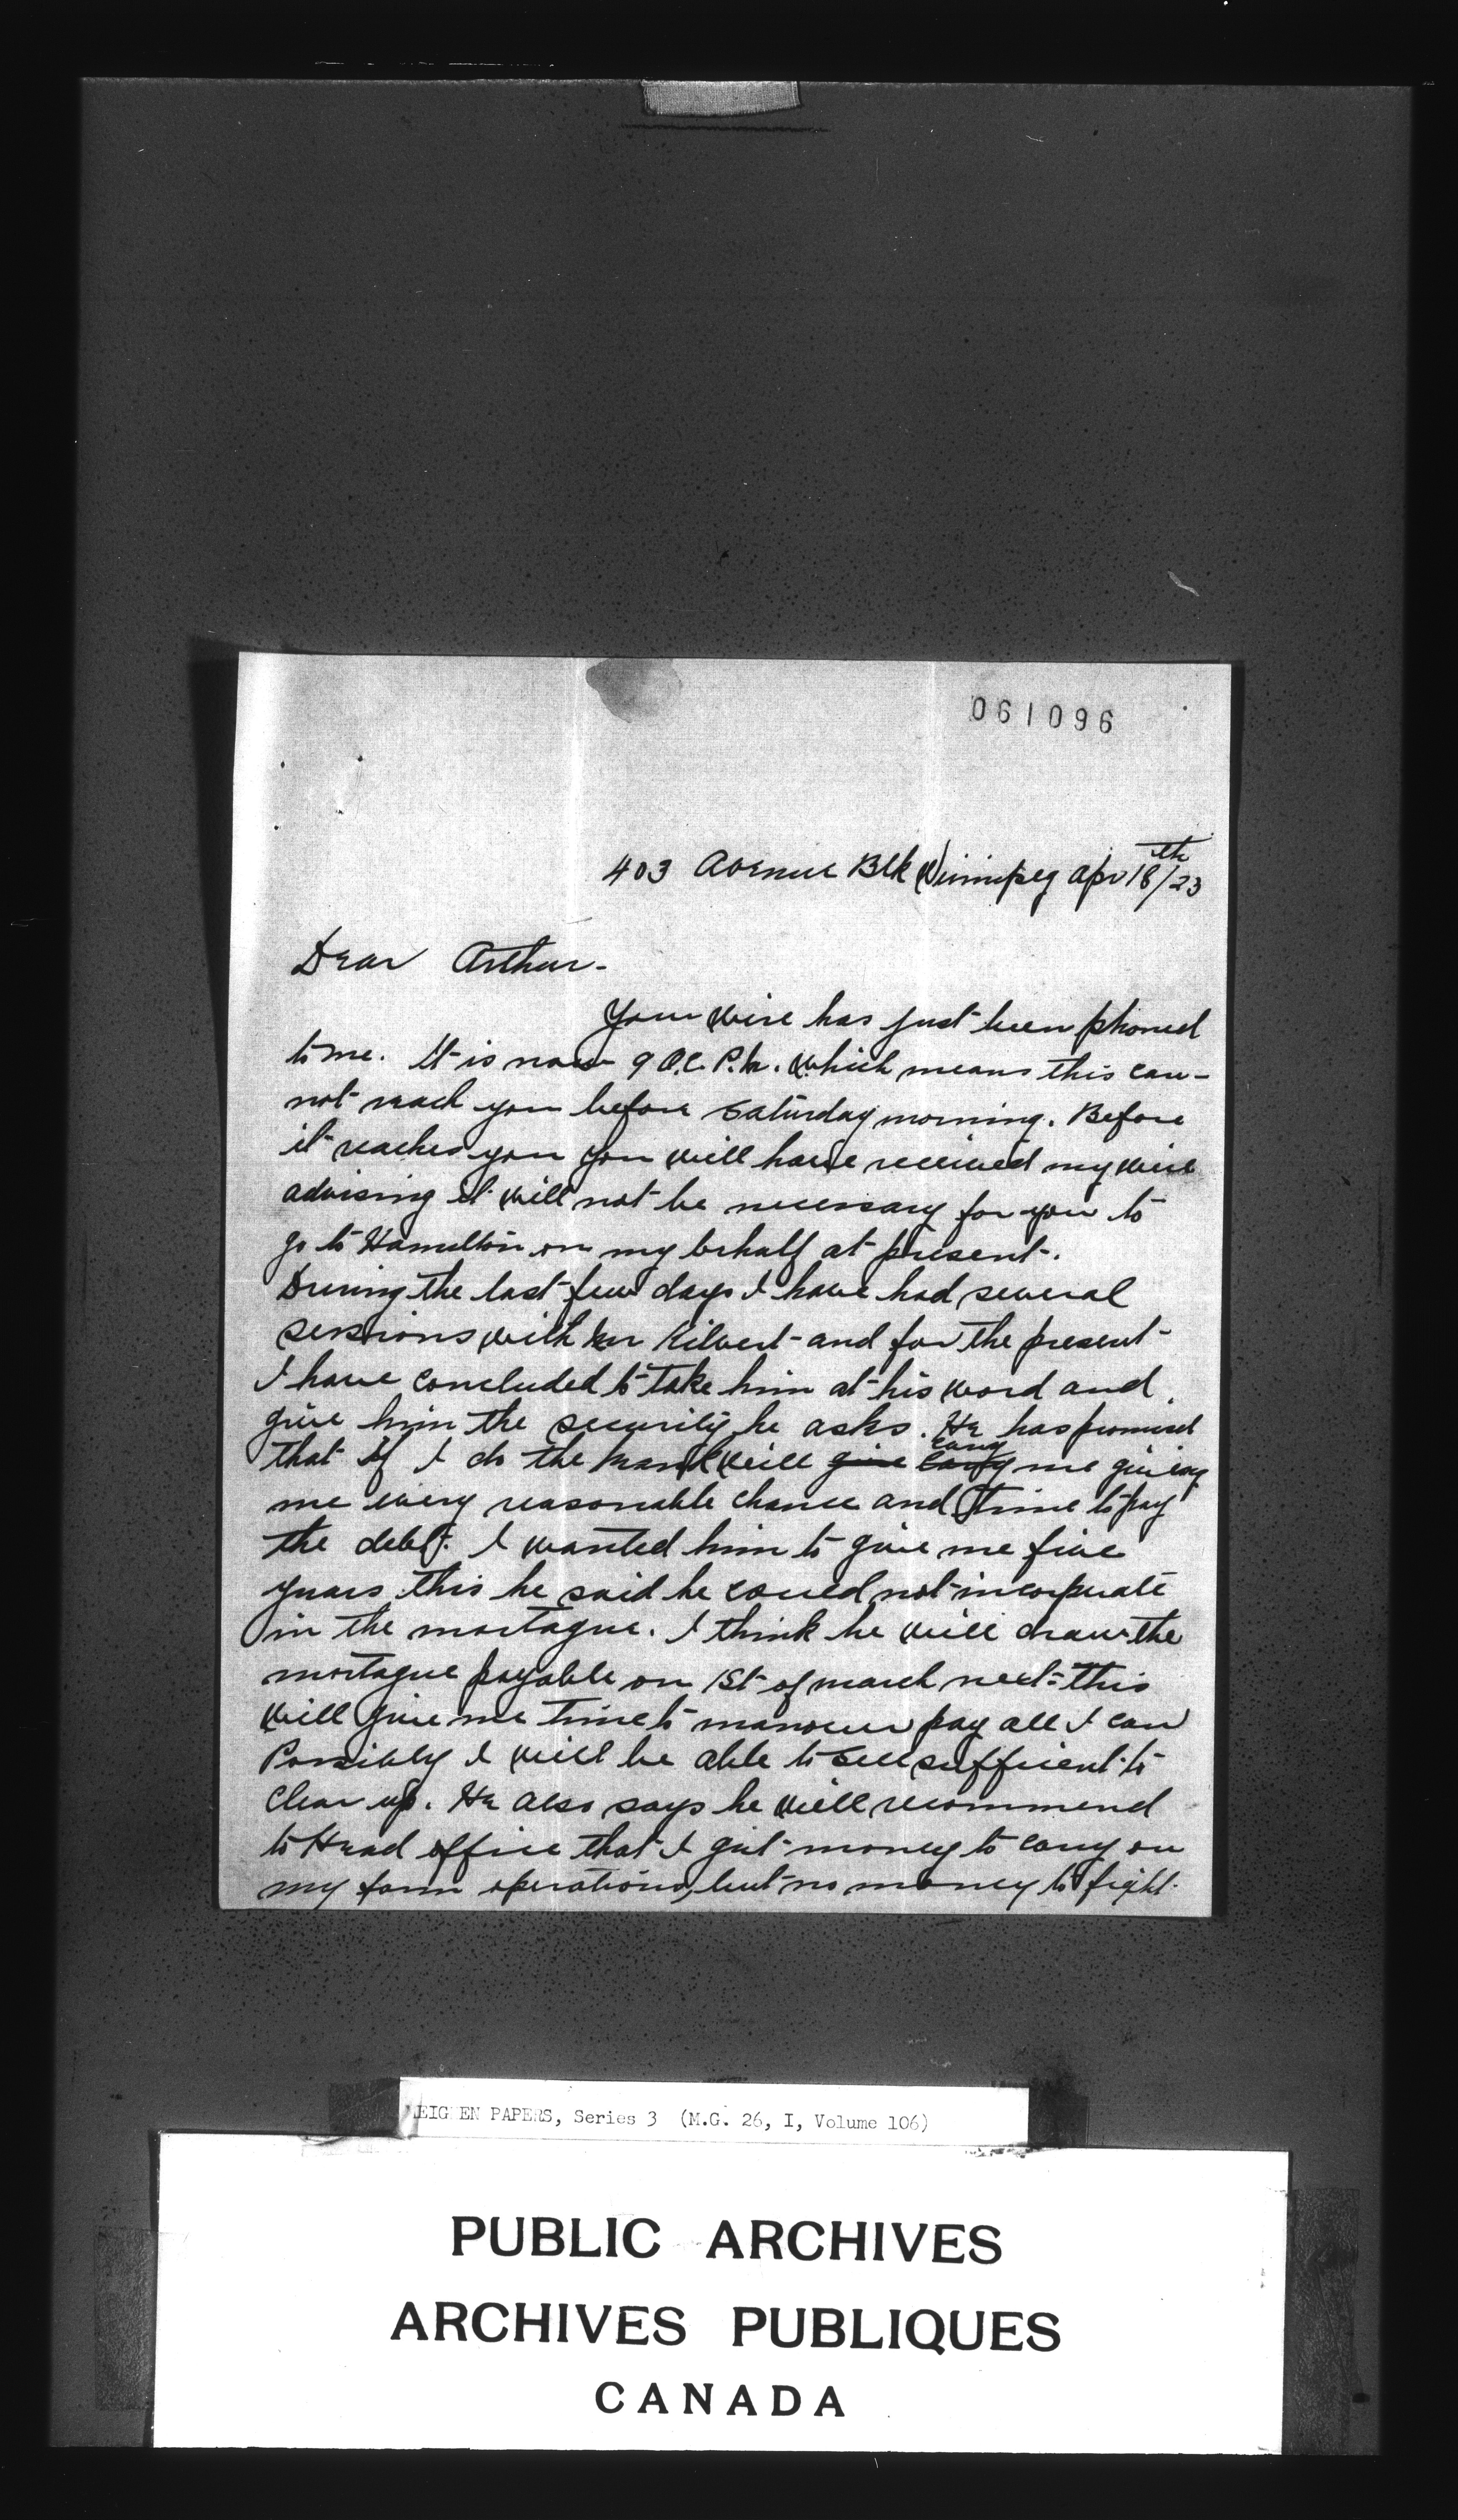 061096
403 Avenue Blk Winnipeg Apr 18th/23
Dear Arthur-
Your wire has just been phoned
to me. It is now 9 O.C. P.M. which means this can-
not reach you before Saturday morning. Before
it reaches you you will have received my wire
advising it will not be necessary for you to
go to Hamilton on my behalf at present.
During the last few days I have had several
sessions with Mr Kilvert and for the present
I have concluded to take him at his word and
give him the security he asks. He has promised
that if I do the Bank will give carry carry me giving
me every reasonable chance and time to pay
the debt. I wanted him to give me five
years this he said he could not incorporate
in the mortague. I think he will draw the
mortague payable on 1st of March next- this
will give me time to pay all I can
Possibly I will be able to sell sufficient to
clear up. He also says he will recommend
to Head office that I get money to carry on
my farm operations, but no money to fight.
EIGHEN PAPERS, Series 3 (M.G. 26, I, Volume 106)
PUBLIC ARCHIVES
ARCHIVES PUBLIQUES
CANADA